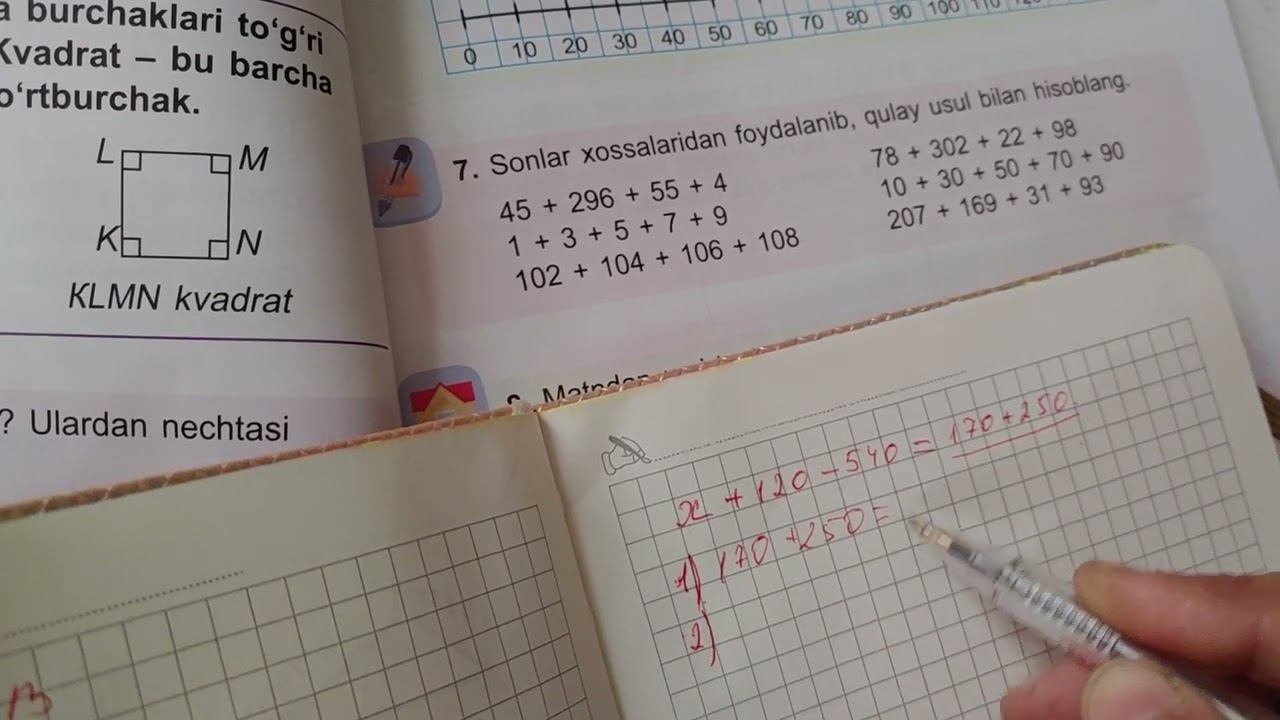 a burchaklari to‘g‘ri
Kvadrat – bu barcha
o‘rtburchak.
L M
K N
KLMN kvadrat
? Ulardan nechtasi
0 10 20 30 40 50 60 70 80 90 100 110
7. Sonlar xossalaridan foydalanib, qulay usul bilan hisoblang.
45 + 296 + 55 + 4
1 + 3 + 5 + 7 + 9
102 + 104 + 106 + 108
78 + 302 + 22 + 98
10 + 30 + 50 + 70 + 90
207 + 169 + 31 + 93
x + 120 - 540 = 170 + 250
1) 170 + 250 =
2)